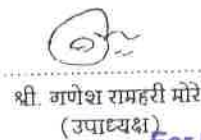 श्री. गणेश रामहरी मोरे
(उपाध्यक्ष)